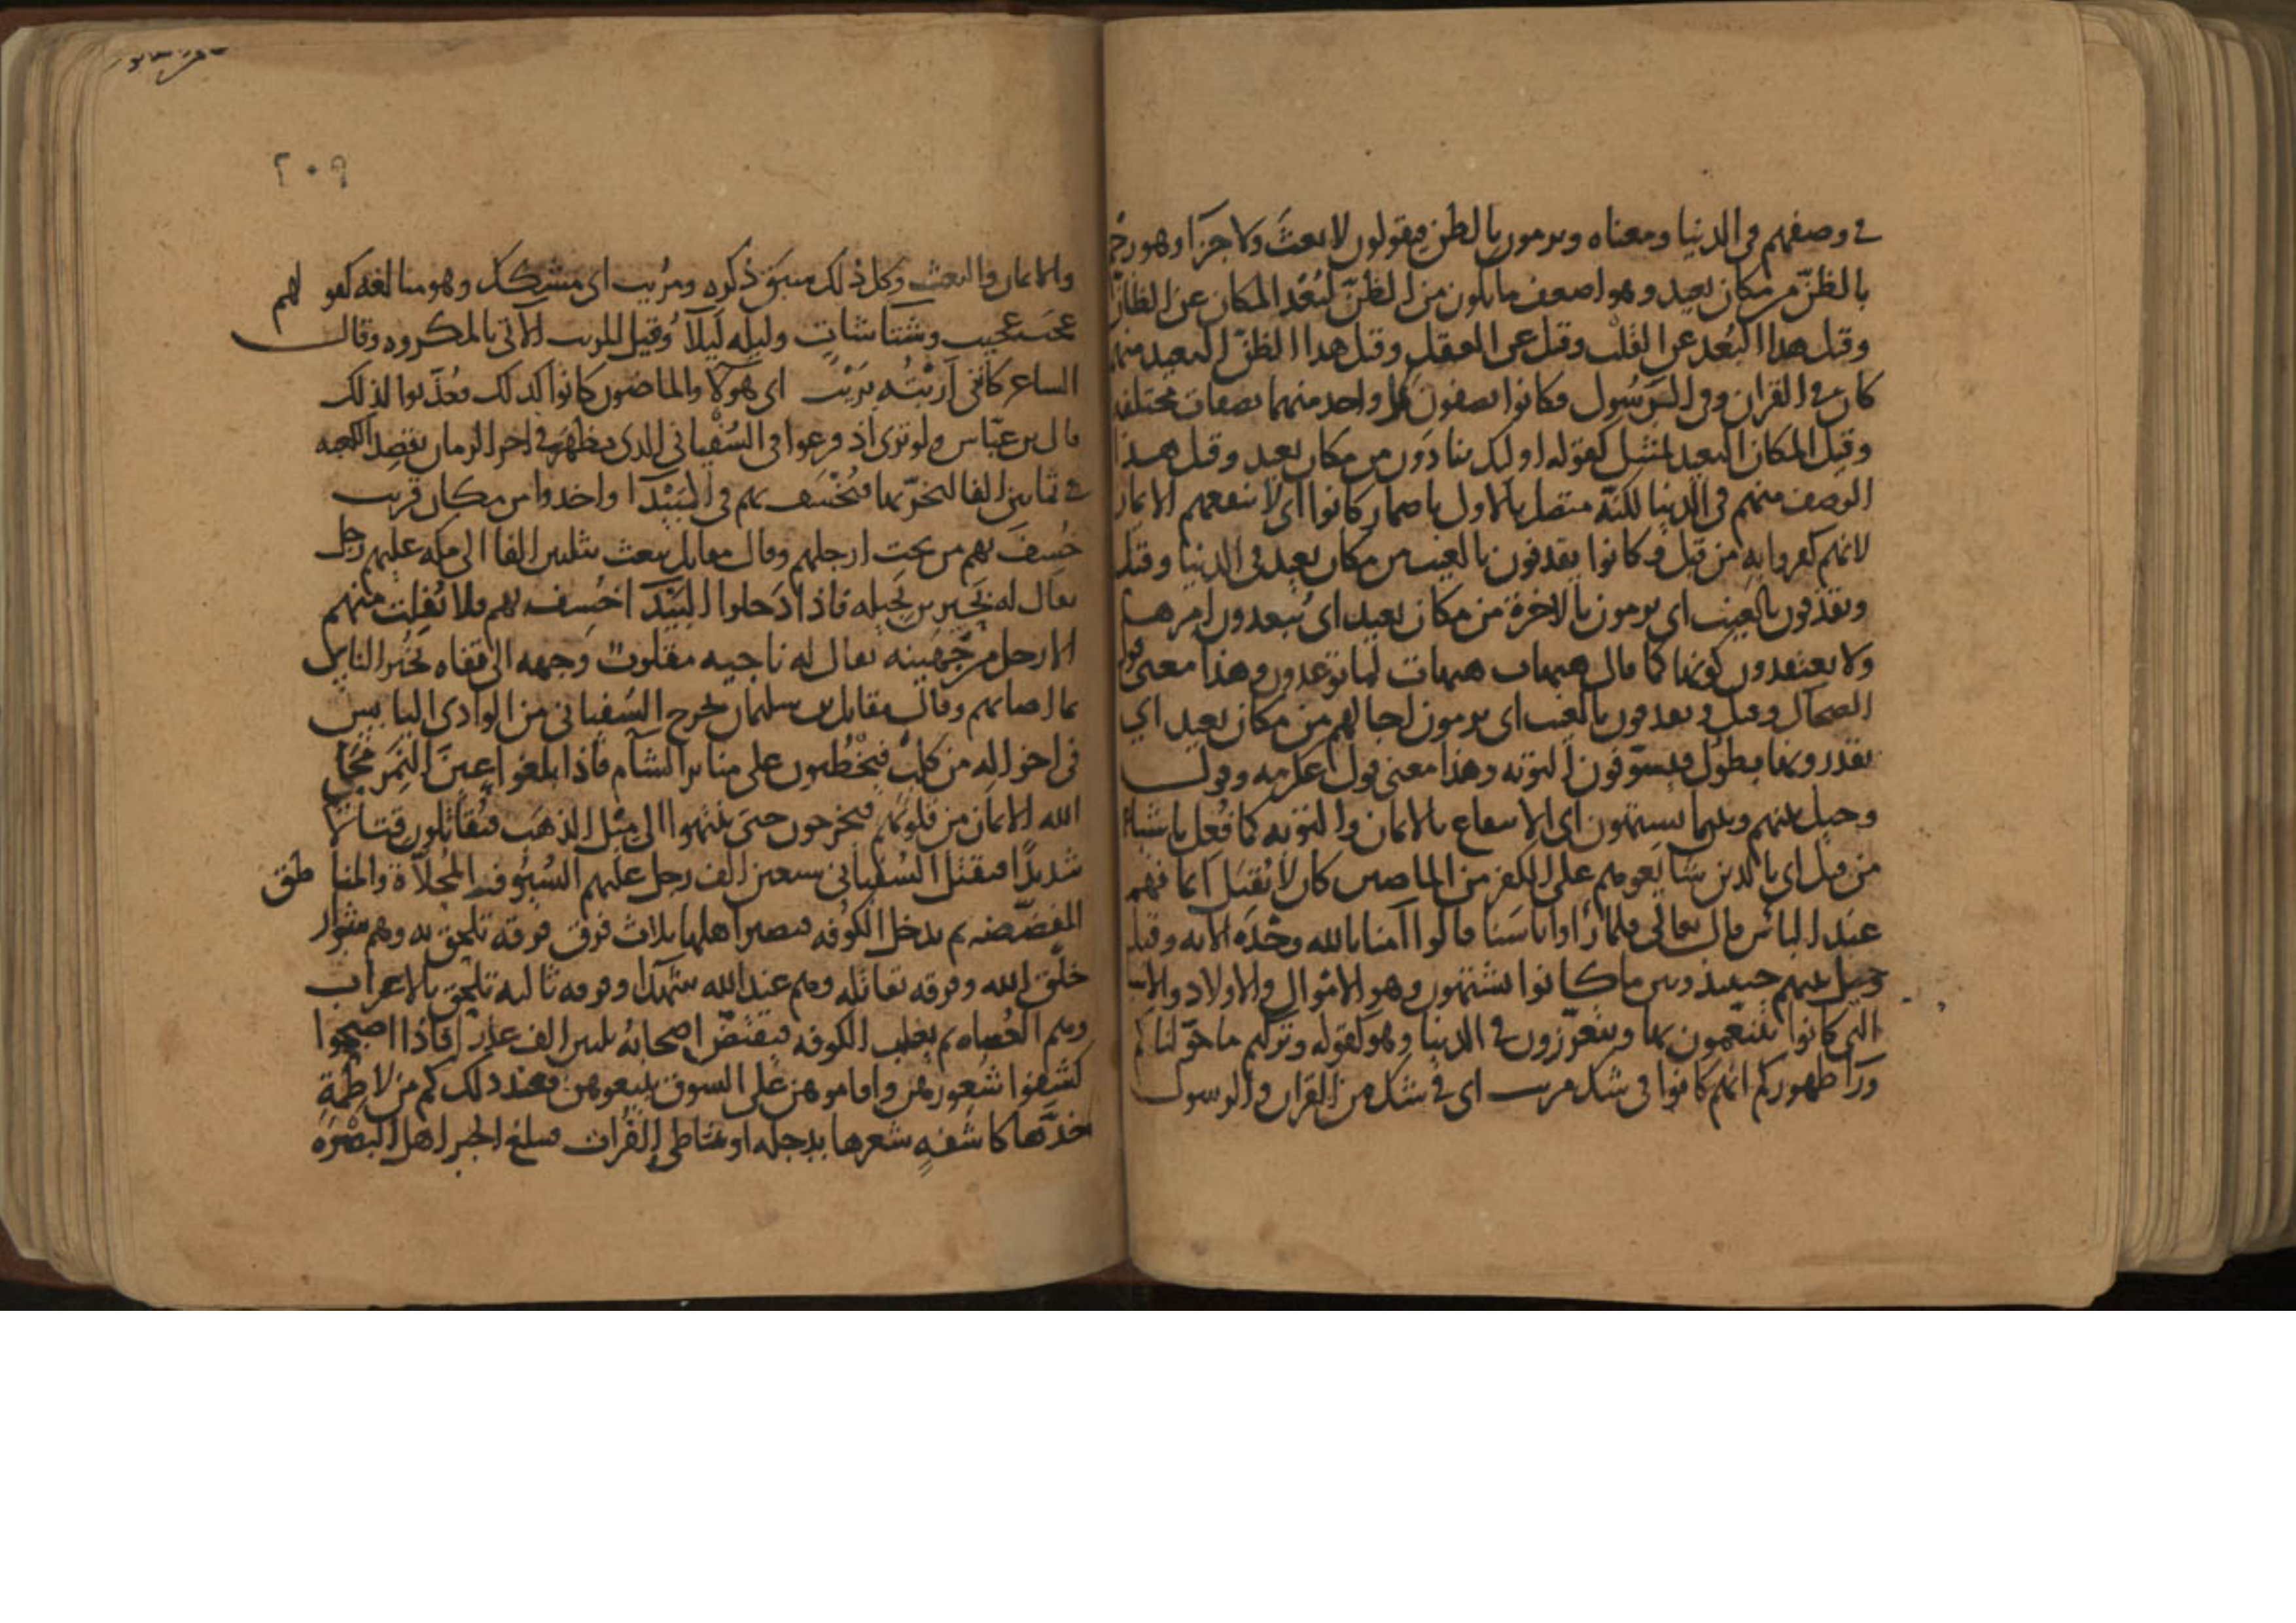 في وصفهم في الدنيا ومعناه ويرمون بالظن فيقولون لا بعث ولا جزآ وهو رجم
بالظنّ من مكان بعيد وهو اضعف ما يكون من الظنّ لبُعْد المكان عن الظانّ
وقيل هذا البُعد عن القلب وقيل عن العقل وقيل هذا الظنّ البعيد منهم
كان في القران وفي الرسُول فكانوا يصفون كل واحد منهما بصفات مختلفة
وقيل المكان البعيد لمثل كقوله اوليك ينادَون من مكان بعيد وقيل هذا
الوصف منهم في الدنيا لكنّه متصل بالاول باضمار كانوا اى لا ينفعهم الايمان
لانهم كفروا به من قبل وكانوا يقذفون بالغيب من مكان بعيد في الدنيا وقيل
ويقذفون بالغيب اى يرمون بالاخرة من مكان بعيد اى يُبعدون امرها
ولا يعتقدون كونها كما قال هيهات هيهات لما توعدون وهذا معنى قول
الضحاك وقيل ويقذفون بالغيب اى يرمون اجالهم من مكان بعيد اي
يقدرونها بطول فيسوّفون التوبه وهذا معنى قول عكرمه وقوله
وحيل بينهم وبين ما يشتهون اى الانتفاع بالايمان والتوبه كما فُعل باشياعهم
من قبل اى بالذين شايعوهم على الكفر من الماضين كان لا يُقبل ايمانهم
عند الباس قال تعالى فلما رَاوا باسَنا قالوا آمنا بالله وحْدَه الايه وقيل
وحيل بينهم حينيذ وبين ما كانوا يشتهون وهو الاموال والاولاد والاسباب
التي كانوا يتنعمون بها ويتعزّزون في الدنيا وهو كقوله وتركتم ما خوّلناكم
ورآ ظهوركم انهم كانوا في شك مريب اى في شك من القران والرسول
٢٠٩
والايمان والبعث وكل ذلك سبق ذكره ومُريب اى مشكك وهو مبالغه كقولهم
عجب عجيب وشتآ شاتٍ وليله ليلآ وقيل المريب الآتي بالمكروه وقال
الشاعر كانني اَرَبْتُه برَيْب اى هولآ والماضون كانوا كذلك فعُذّبوا لذلك
قال بن عبّاس ولو ترى اذ فزعوا في السُفياني الذى يظهر في اخر الزمان يقصِد الكعبه
في ثمانين الفا ليخرّبها فيُخْسَف بهم في البَيْدآ واخذوا من مكان قريب
خُسِفَ بهم من تحت ارجلهم وقال مقاتل يبعث ثلثين الفا الى مكه عليهم رجل
يقال له بَحِير بن بَجيله فاذا دَخلوا البَيْدَآ خُسِف بهم فلا يُفلت منهم
الا رجل من جُهَينه يقال له ناجيه مقلوب وجهه الى قفاه يُخبر الناس
بما اصابهم وقال مقاتل بن سليمان يخرج السُفياني من الوادى اليابس
في اخواله من كلبٍ فيَخْطُبون على منابر الشام فاذا بلغوا عينَ التمر محا
الله الايمان من قلوبهم فيخرجون حتى ينتهوا الى جبل الذهَب فيُقاتلون قتالا
شديدًا فيقتل السُفياني سبعين الف رجل عليهم السُيُوف المُحلاّة والمناطق
المفضّضه ثم يدخل الكُوفه فيصير اهلها ثلاث فرق فرقه تلحق به وهم شرار
خلق الله وفرقه تقاتله وهم عند الله شهدآ وفرقه ثالثه تلحق بالاعراب
وهم العُصاه ثم يغلب الكوفه فيفتضّ اصحابُه ثلثين الف عذرآ فاذا اصبحوا
كشفوا شُعورهن واقاموهن على السوق يبيعوهن فعند ذلك كم من لاطمةٍ
خدَّها كاشفهٍ شعرها بدجله او شاطى الفُرات فيبلغ الخبر اهل البصْرَه